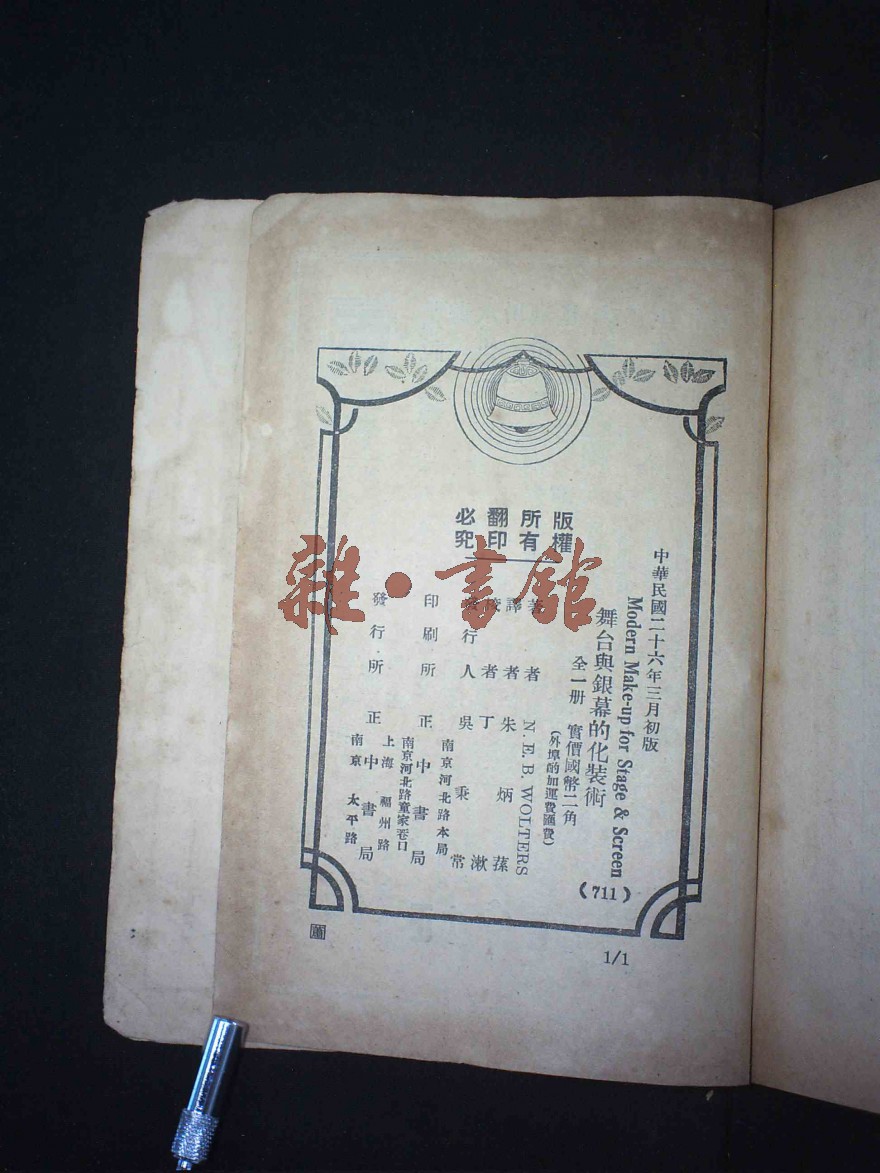 中華民國二十六年三月初版
Modern Make-up for Stage & Screen
舞台與銀幕的化裝術
(711)
全一册 實價國幣二角
(外埠酌加運費匯費)
版權所有
翻印必究
著者 N. E. B. WOLTERS
譯者 朱炳蓀
校者 丁漱
發行人 吳秉常
南京河北路本局
印刷所 正中書局
南京河北路童家巷口
發行所 正中書局
上海福州路
南京太平路
1/1
雜·書館